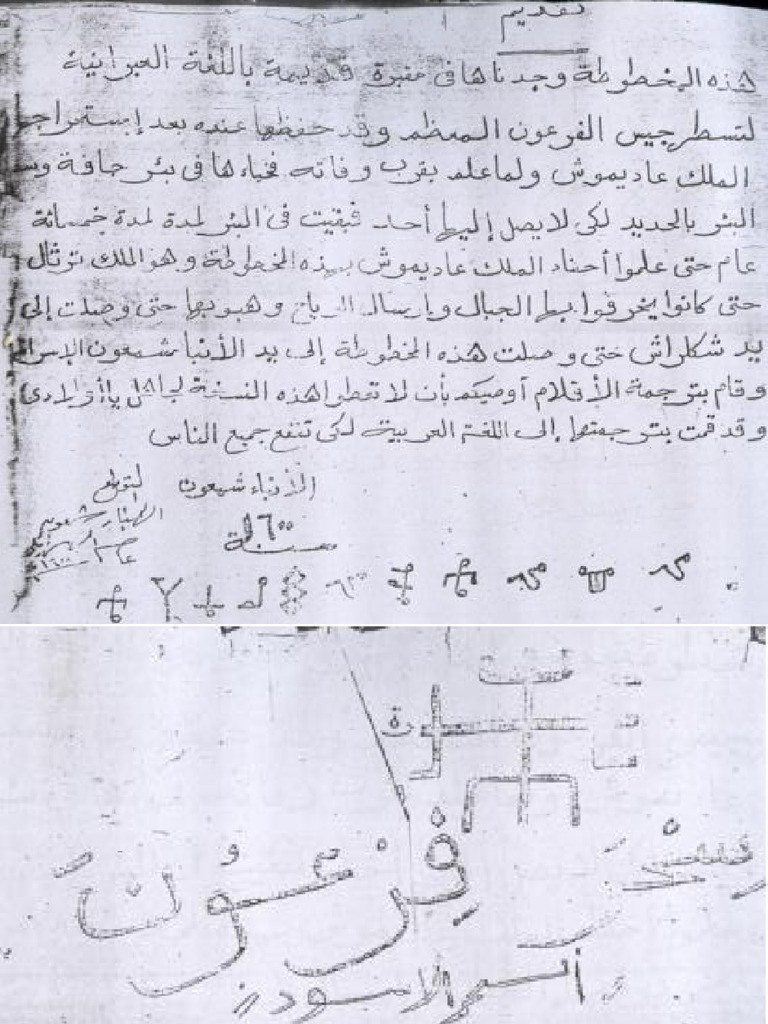 تقديم
هذه المخطوطة وجدناها في مقبرة قديمة باللغة العبرانية
لتسطرجيس الفرعون المعظم وقد حفظها عنده بعد إستخراج
الملك عاديموش ولما علم بقرب وفاته فخباءها في بئر جافة وسد
البئر بالحديد لكى لا يصل إليها أحد فبقيت فى البئر لمدة لمدة خمسمائة
عام حتى علموا أحفاد الملك عاديموش بهذه المخطوطة وهو الملك نوثال
حتى كانوا يخرقوا بها الجبال وبإرسال الرياح وهبوبها حتى وصلت إلى
يد شكلراش حتى وصلت هذه المخطوطة إلى يد الأنبا شمعون الإسرا
وقام بترجمة الأقلام أوصيكم بأن لا تعطوا هذه النسخة لجاهل يا أولادى
وقد قمت بترجمتها إلى اللغة العربية لكى تنفع جميع الناس
الأنباء شيعون
سنة ١٦٠٠
فِرْعَوْنَ
السحر الاسود